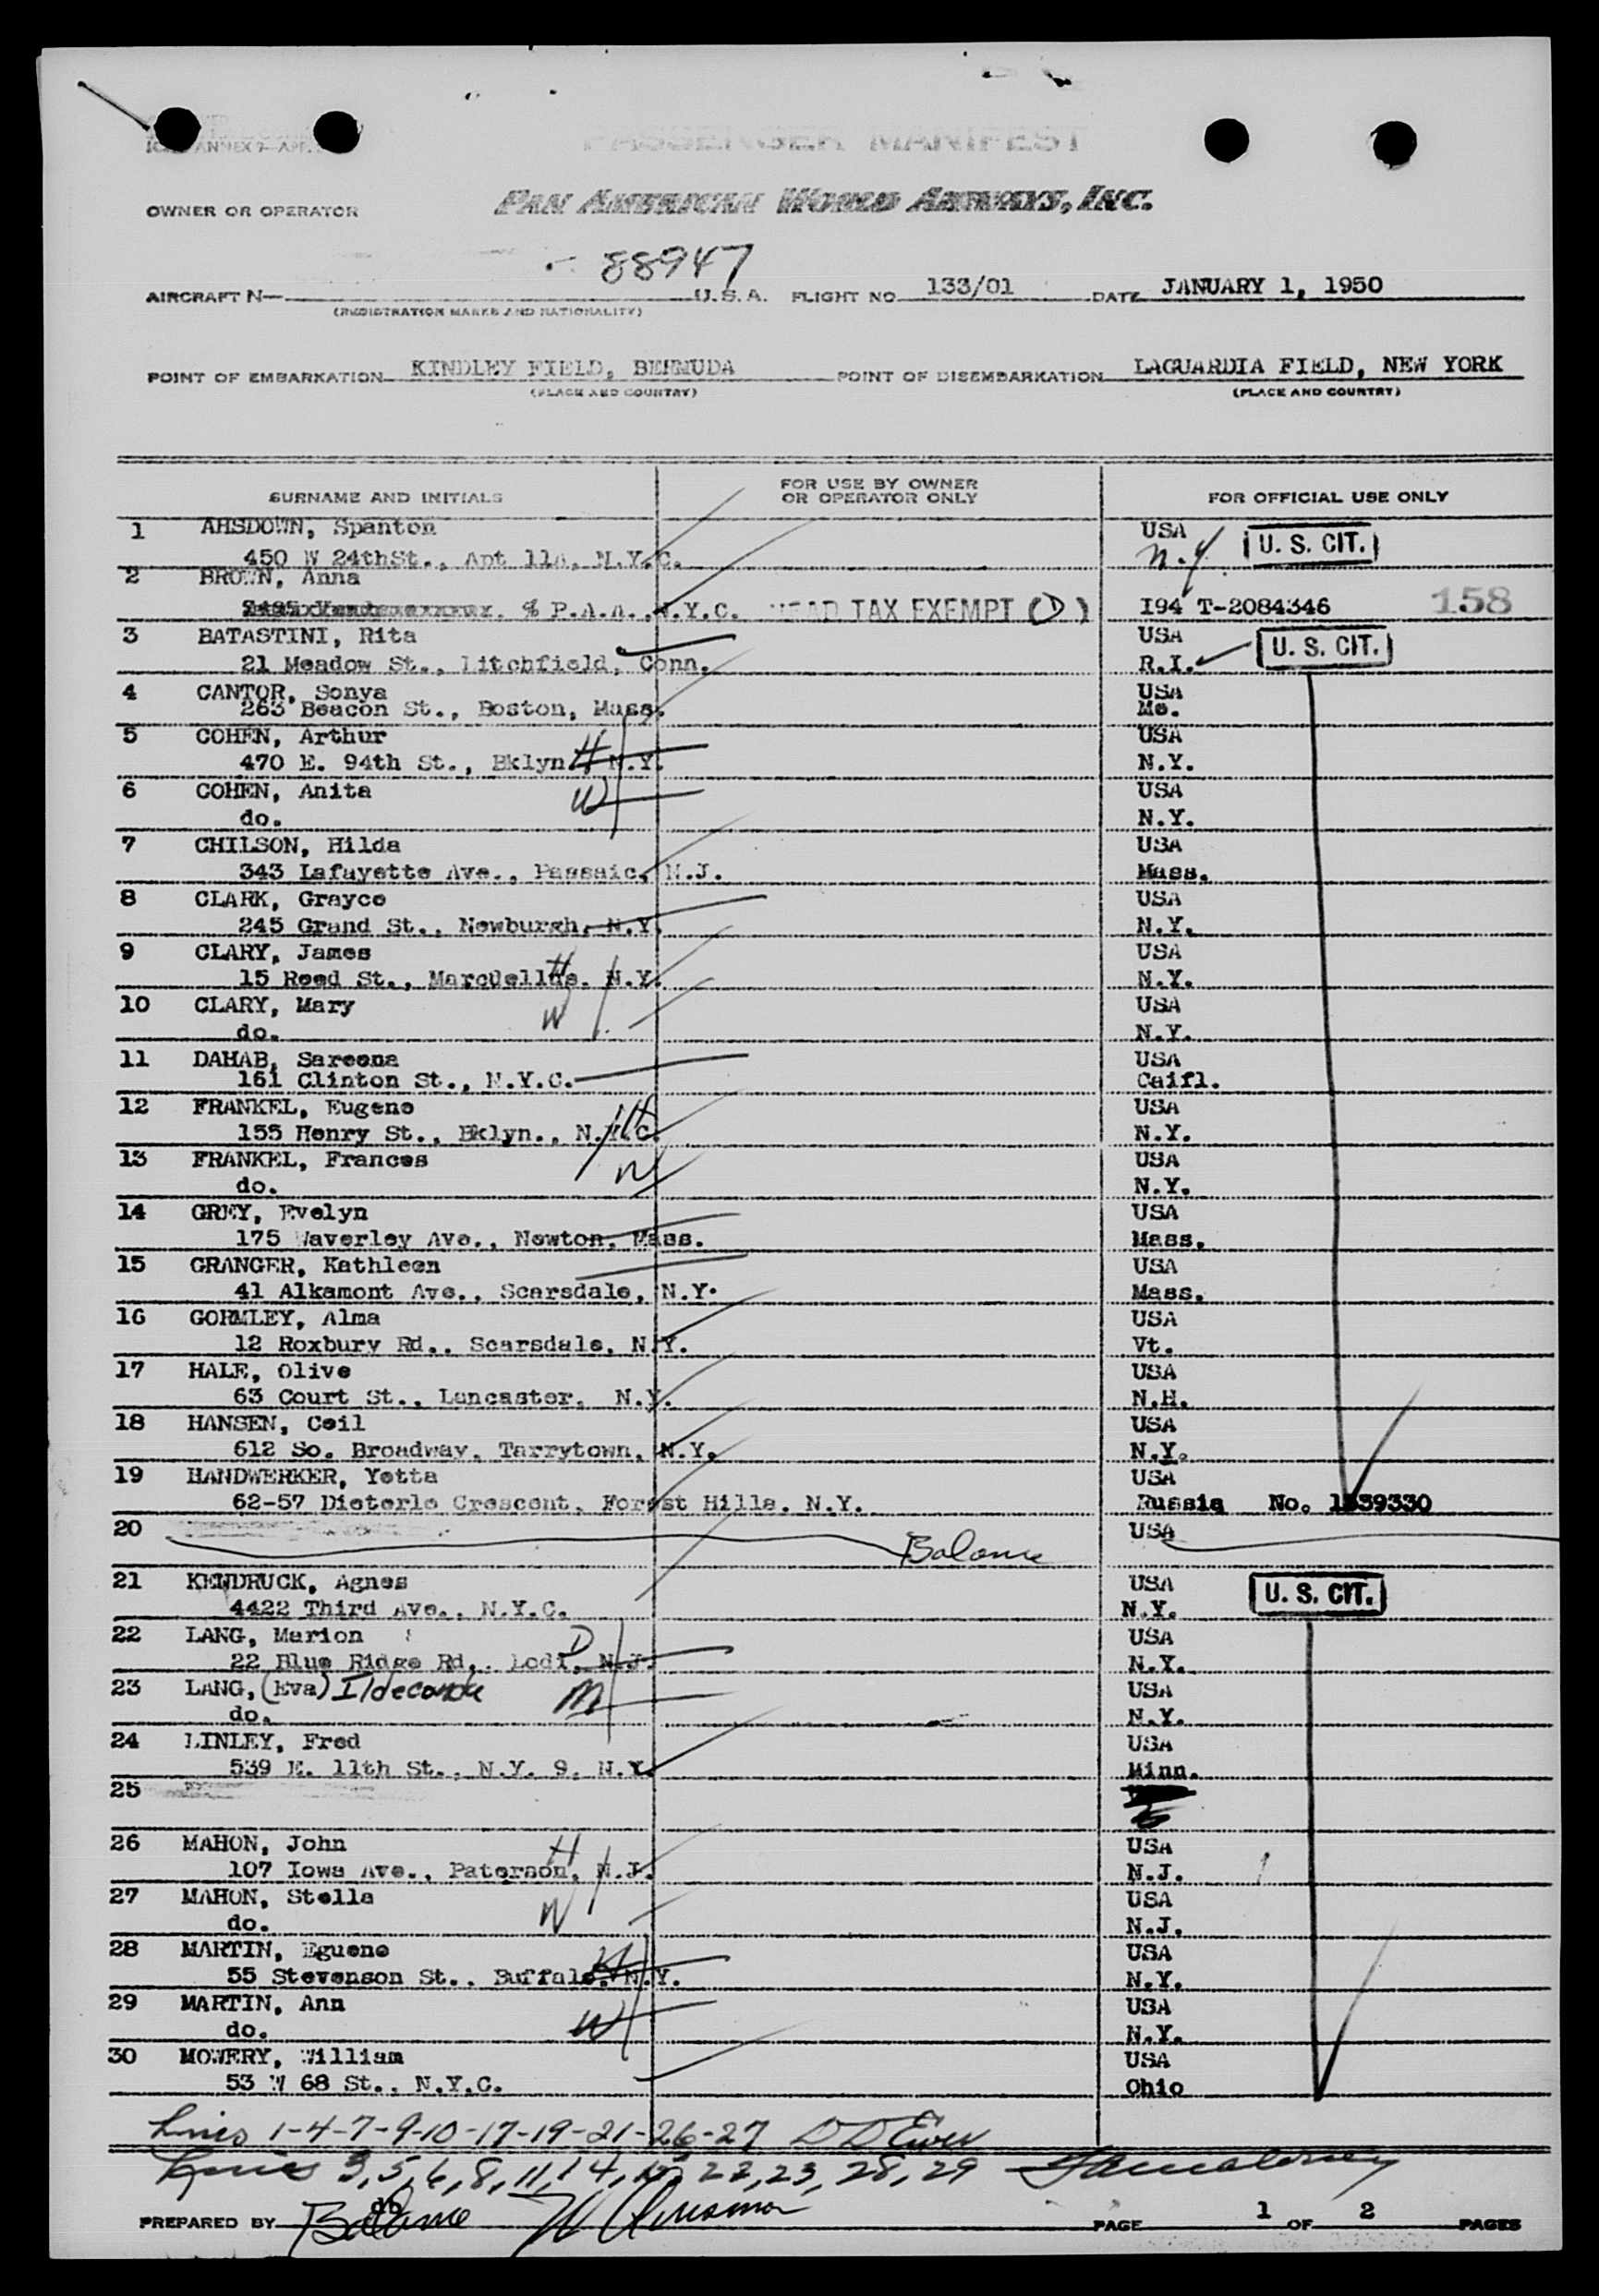 ANNEX 9—APR.
PASSENGER MANIFEST
OWNER OR OPERATOR PAN AMERICAN WORLD AIRWAYS, INC.
88947
AIRCRAFT N— U.S.A. FLIGHT NO. 133/01 DATE JANUARY 1, 1950
(REGISTRATION MARKS AND NATIONALITY)
POINT OF EMBARKATION KINDLEY FIELD, BERMUDA POINT OF DISEMBARKATION LAGUARDIA FIELD, NEW YORK
(PLACE AND COUNTRY) (PLACE AND COUNTRY)
SURNAME AND INITIALS FOR USE BY OWNER OR OPERATOR ONLY FOR OFFICIAL USE ONLY
1 AHSDOWN, Spanton USA
450 W 24thSt., Apt 11A, N.Y.C. N.Y. U. S. CIT.
2 BROWN, Anna
% P.A.A., N.Y.C. HEAD TAX EXEMPT (D) I94 T-2084346 158
3 BATASTINI, Rita USA
21 Meadow St., Litchfield, Conn. R.I. U. S. CIT.
4 CANTOR, Sonya USA
263 Beacon St., Boston, Mass. Me.
5 COHEN, Arthur USA
470 E. 94th St., Bklyn. H N.Y. N.Y.
6 COHEN, Anita W USA
do. N.Y.
7 CHILSON, Hilda USA
343 Lafayette Ave., Passaic, N.J. Mass.
8 CLARK, Grayce USA
245 Grand St., Newburgh, N.Y. N.Y.
9 CLARY, James H USA
15 Reed St., Marcuellus, N.Y. N.Y.
10 CLARY, Mary W USA
do. N.Y.
11 DAHAB, Sareena USA
161 Clinton St., N.Y.C. Caifl.
12 FRANKEL, Eugene H USA
155 Henry St., Bklyn., N.Y.C. N.Y.
13 FRANKEL, Frances W USA
do. N.Y.
14 GREY, Evelyn USA
175 Waverley Ave., Newton, Mass. Mass.
15 GRANGER, Kathleen USA
41 Alkamont Ave., Scarsdale, N.Y. Mass.
16 GORMLEY, Alma USA
12 Roxbury Rd., Scarsdale, N.Y. Vt.
17 HALE, Olive USA
63 Court St., Lancaster, N.Y. N.H.
18 HANSEN, Ceil USA
612 So. Broadway, Tarrytown, N.Y. N.Y.
19 HANDWERKER, Yetta USA
62-57 Dieterle Crescent, Forest Hills, N.Y. Russia No. 1539330
20 USA
21 KENDRUCK, Agnes USA
4422 Third Ave., N.Y.C. N.Y. U. S. CIT.
22 LANG, Marion D USA
22 Blue Ridge Rd., Lodi, N.J. N.Y.
23 LANG, (Eva) M USA
do. N.Y.
24 LINLEY, Fred USA
539 E. 11th St., N.Y. 9, N.Y. Minn.
25
26 MAHON, John H USA
107 Iowa Ave., Paterson, N.J. N.J.
27 MAHON, Stella W USA
do. N.J.
28 MARTIN, Eguene H USA
55 Stevenson St., Buffalo, N.Y. N.Y.
29 MARTIN, Ann W USA
do. N.Y.
30 MOWERY, William USA
53 W 68 St., N.Y.C. Ohio
Lines 1-4-7-9-10-17-19-21-26-27
Lines 3, 5, 6, 8, 11, 14, 15, 22, 23, 28, 29
PREPARED BY db PAGE 1 OF 2 PAGES